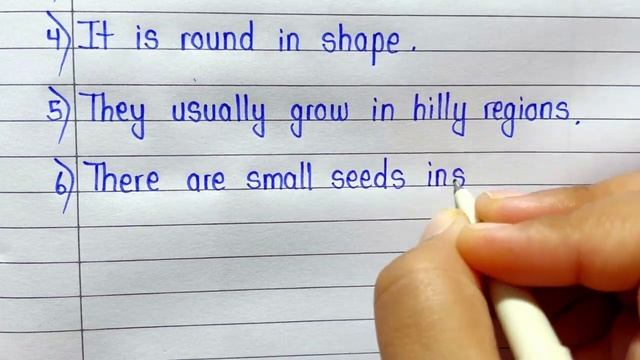 4) It is round in shape.
5) They usually grow in hilly regions.
6) There are small seeds ins